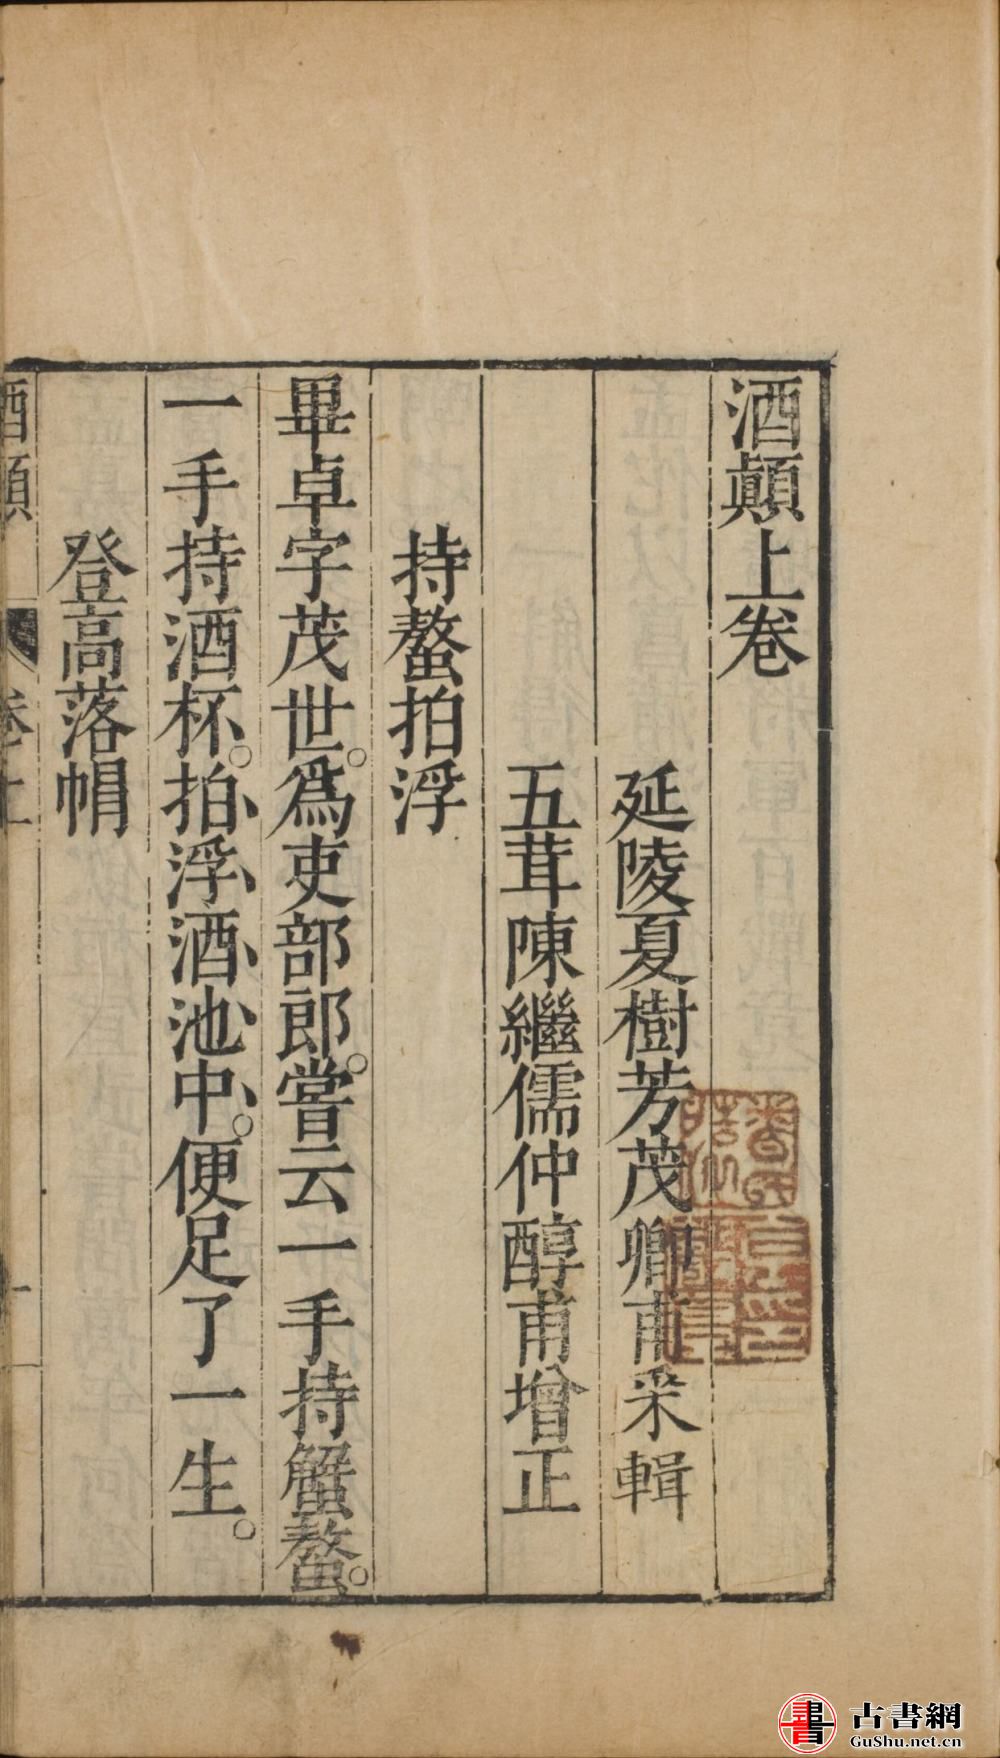 酒顛上卷
延陵夏樹芳茂卿甫采輯
五茸陳繼儒仲醇甫增正
持螯拍浮
畢卓字茂世。為吏部郎。嘗云一手持蟹螯。
一手持酒杯。拍浮酒池中。便足了一生。
登高落帽
酒顛
卷上
一
古書網
GuShu.net.cn